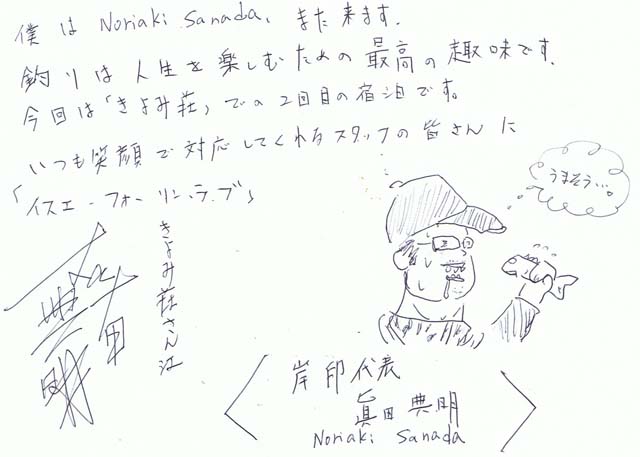 僕は Noriaki Sanada、また来ます.
釣りは人生を楽しむための最高の趣味です.
今回は「きよみ荘」での2回目の宿泊です。
いつも笑顔で対応してくれるスタッフの皆さんに
「イスエ・フォーリン・ラブ」
うまそう…。
きよみ荘さん江
岸印代表
眞田典明
Noriaki Sanada